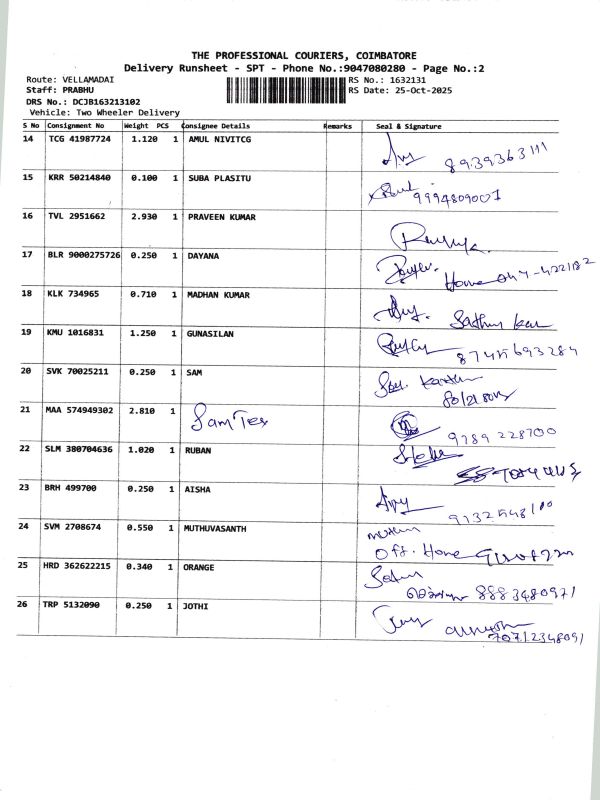 THE PROFESSIONAL COURIERS, COIMBATORE
Delivery Runsheet - SPT - Phone No.:9047080280 - Page No.:2
Route: VELLAMADAI RS No.: 1632131
Staff: PRABHU RS Date: 25-Oct-2025
DRS No.: DCJB163213102
Vehicle: Two Wheeler Delivery
S No Consignment No Weight PCS Consignee Details Remarks Seal & Signature
14 TCG 41987724 1.120 1 AMUL NIVITCG
15 KRR 50214840 0.100 1 SUBA PLASITU
9994809001
16 TVL 2951662 2.930 1 PRAVEEN KUMAR
17 BLR 9000275726 0.250 1 DAYANA
Home
18 KLK 734965 0.710 1 MADHAN KUMAR
19 KMU 1016831 1.250 1 GUNASILAN
8745693284
20 SVK 70025211 0.250 1 SAM
21 MAA 574949302 2.810 1 Sam Tex
9789 228700
22 SLM 380704636 1.020 1 RUBAN
23 BRH 499700 0.250 1 AISHA
24 SVM 2708674 0.550 1 MUTHUVASANTH
Off. Home
25 HRD 362622215 0.340 1 ORANGE
8883480971
26 TRP 5132090 0.250 1 JOTHI